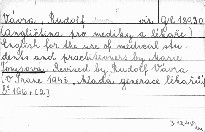 Vávra, Rudolf vis. Gč 18930
(Angličtina pro mediky a lékaře)
English for the use of medical stu-
dents and practitioners by Marie
Revised by Rudolf Vávra
V Praze 1946. Mladá generace lékařů
8° 166 + [2]